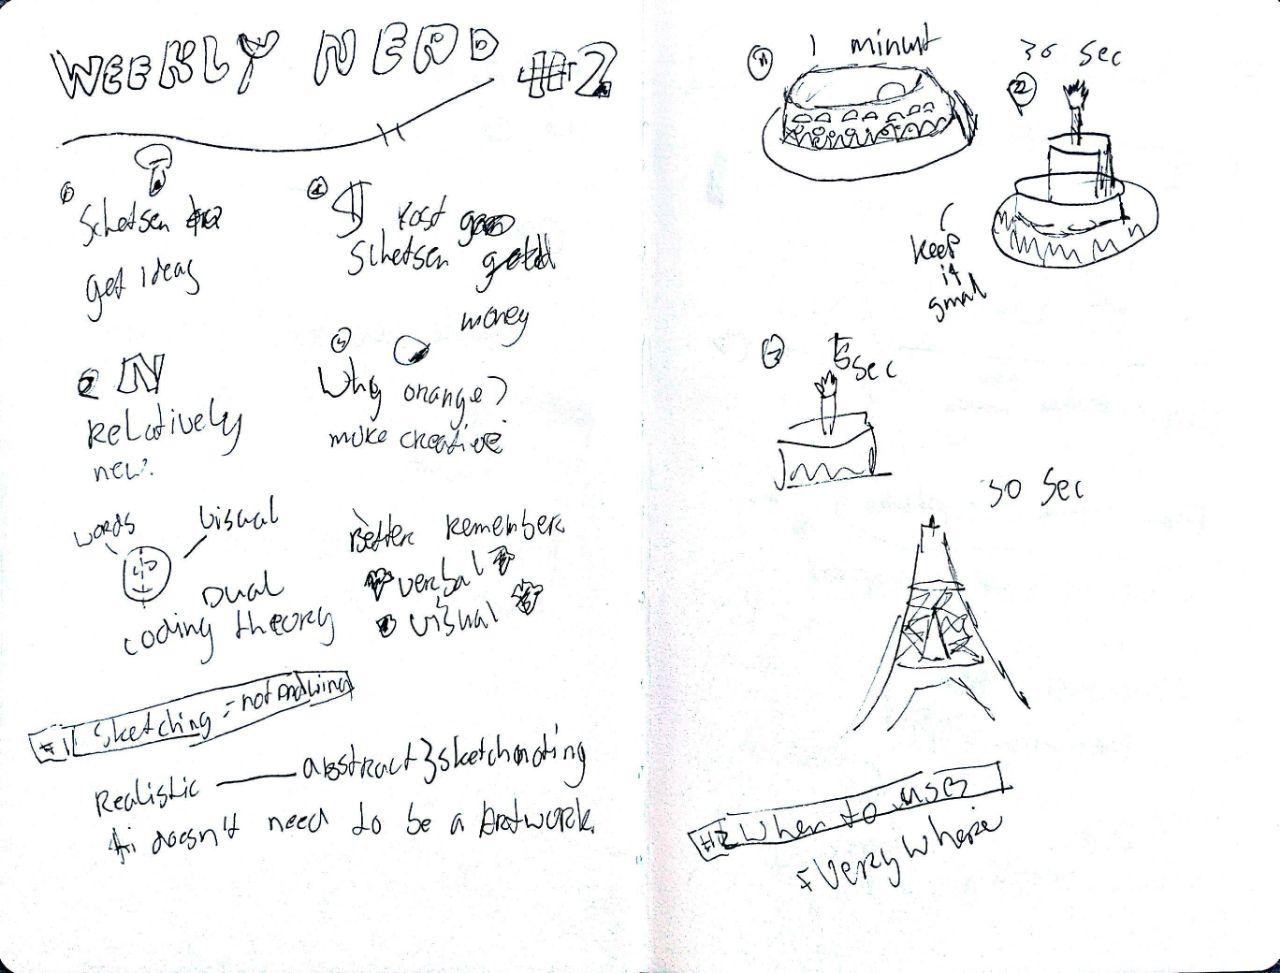 WEEKLY NERD #2
1
Schetsen
get ideas
2
kost
Schetsen
money
N
Relatively
new?
4
Why orange?
make creative
words
visual
Dual
coding theory
Better remember
verbal
visual
#1 Sketching = not drawing
Realistic — abstract } sketchnoting
doesn't need to be a artwork.
1 1 minut
2 30 sec
keep
it
small
3 5 sec
30 sec
#2 When to use
Everywhere